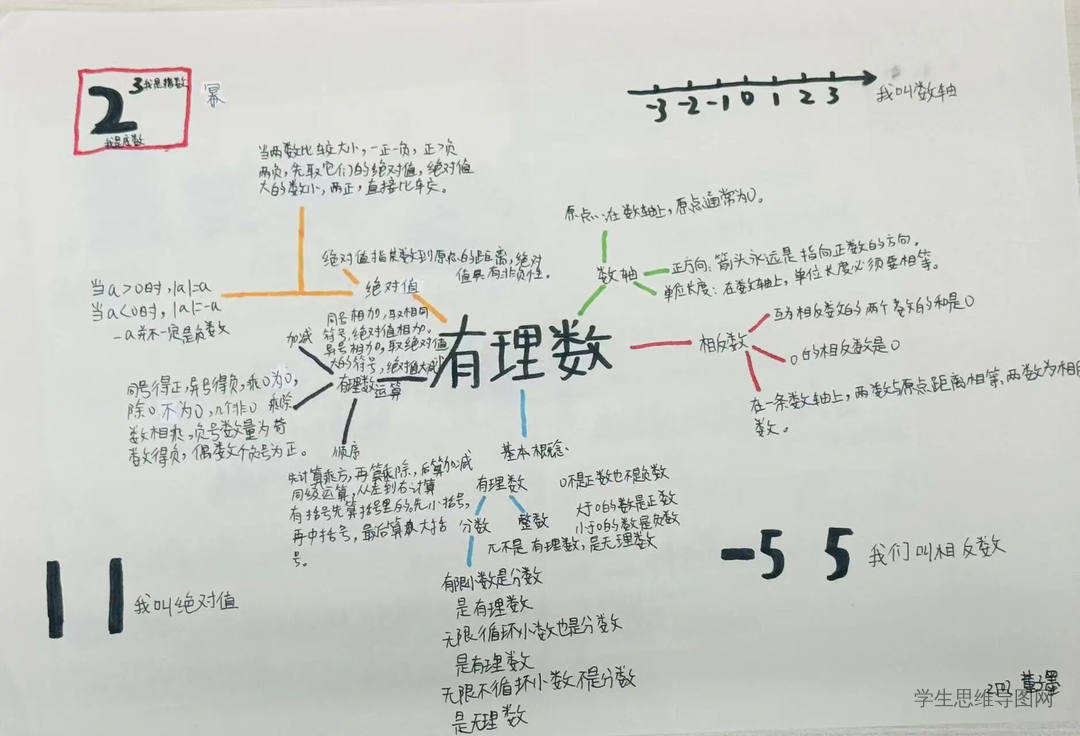 3我是指数
2
我是底数
幂
-3 -2 -1 0 1 2 3
我叫数轴
当两数比较大小,一正一负,正>负
两负,先取它们的绝对值,绝对值
大的数小,两正,直接比较。
绝对值指某数到原点的距离,绝对
值具有非负性。
绝对值
当a>0时,|a|=a
当a<0时,|a|=-a
-a并不一定是负数
原点:在数轴上,原点通常为0。
数轴
正方向:箭头永远是指向正数的方向。
单位长度:在数轴上,单位长度必须要相等。
有理数
相反数
互为相反数的两个数的和是0
0的相反数是0
在一条数轴上,两数与原点距离相等,两数为相反
数。
加减
同号相加,取相同
符号,绝对值相加。
异号相加,取绝对值
大的符号,绝对值大减
有理数
运算
乘除
同号得正,异号得负,乘0为0,
除0不为0,几个非0
数相乘,负号数量为奇
数得负,偶数个负号为正。
顺序
先计算乘方,再算乘除,后算加减
同级运算,从左到右计算
有括号先算括号里的,先小括号,
再中括号,最后算大括
号。
基本概念
有理数
分数
整数
0不是正数也不是负数
大于0的数是正数
小于0的数是负数
π不是有理数,是无理数
有限小数是分数
是有理数
无限循环小数也是分数
是有理数
无限不循环小数不是分数
是无理数
| |
我叫绝对值
-5 5
我们叫相反数
学生思维导图网